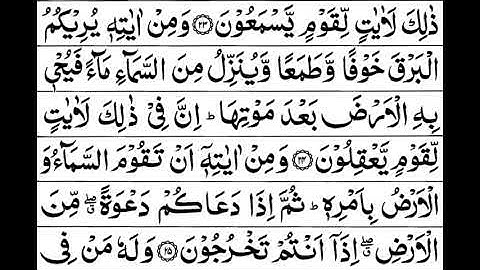 ذٰلِكَ لَاٰيٰتٍ لِّقَوْمٍ يَّسْمَعُوْنَ ۝۲۳ وَمِنْ اٰيٰتِهٖ يُرِيْكُمُ
الْبَرْقَ خَوْفًا وَّطَمَعًا وَّيُنَزِّلُ مِنَ السَّمَآءِ مَآءً فَيُحْيٖ
بِهِ الْاَرْضَ بَعْدَ مَوْتِهَا ؕ اِنَّ فِيْ ذٰلِكَ لَاٰيٰتٍ
لِّقَوْمٍ يَّعْقِلُوْنَ ۝۲۴ وَمِنْ اٰيٰتِهٖۤ اَنْ تَقُوْمَ السَّمَآءُ وَ
الْاَرْضُ بِاَمْرِهٖ ؕ ثُمَّ اِذَا دَعَاكُمْ دَعْوَةً ۖۗ مِّنَ
الْاَرْضِ ۖۗ اِذَاۤ اَنْتُمْ تَخْرُجُوْنَ ۝۲۵ وَلَهٗ مَنْ فِي